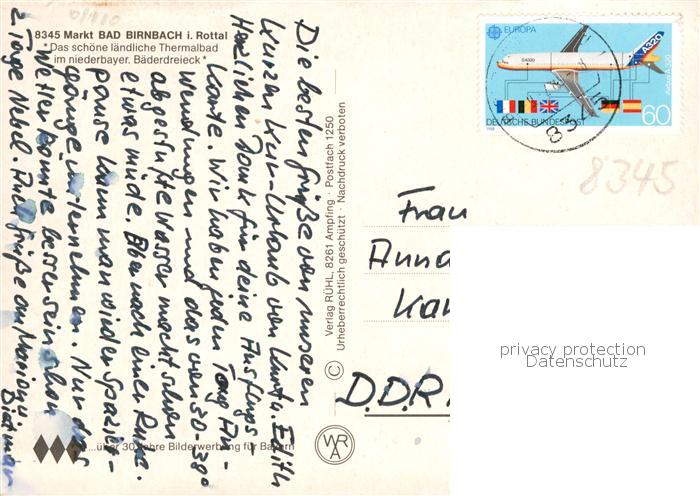 01980
8345 Markt BAD BIRNBACH i. Rottal
"Das schöne ländliche Thermalbad
im niederbayer. Bäderdreieck"
Die besten Grüße von unserem
kurzen Kur-Urlaub von Kurt u. Edith
Herzlichen Dank für deine Ausflugs-
karte. Wir haben jeden Tag An-
wendungen und das von 30-38°
abgestufte Wasser macht schon
etwas müde. Aber nach einer Ruhe-
pause kann man wieder Spazier-
gänge unternehmen. Nur das
Wetter könnte besser sein schon
2 Tage Nebel. Auch Grüße an Marion u
Dietmar
...über 30 Jahre Bilderwerbung für Bayern
Verlag RÜHL, 8261 Ampfing · Postfach 1250
Urheberrechtlich geschützt · Nachdruck verboten
©
WRA
EUROPA
A320
Airbus A320
DEUTSCHE BUNDESPOST
60
1988
834
8345
Frau
Anna
Kar
D.D.R.
privacy protection
Datenschutz